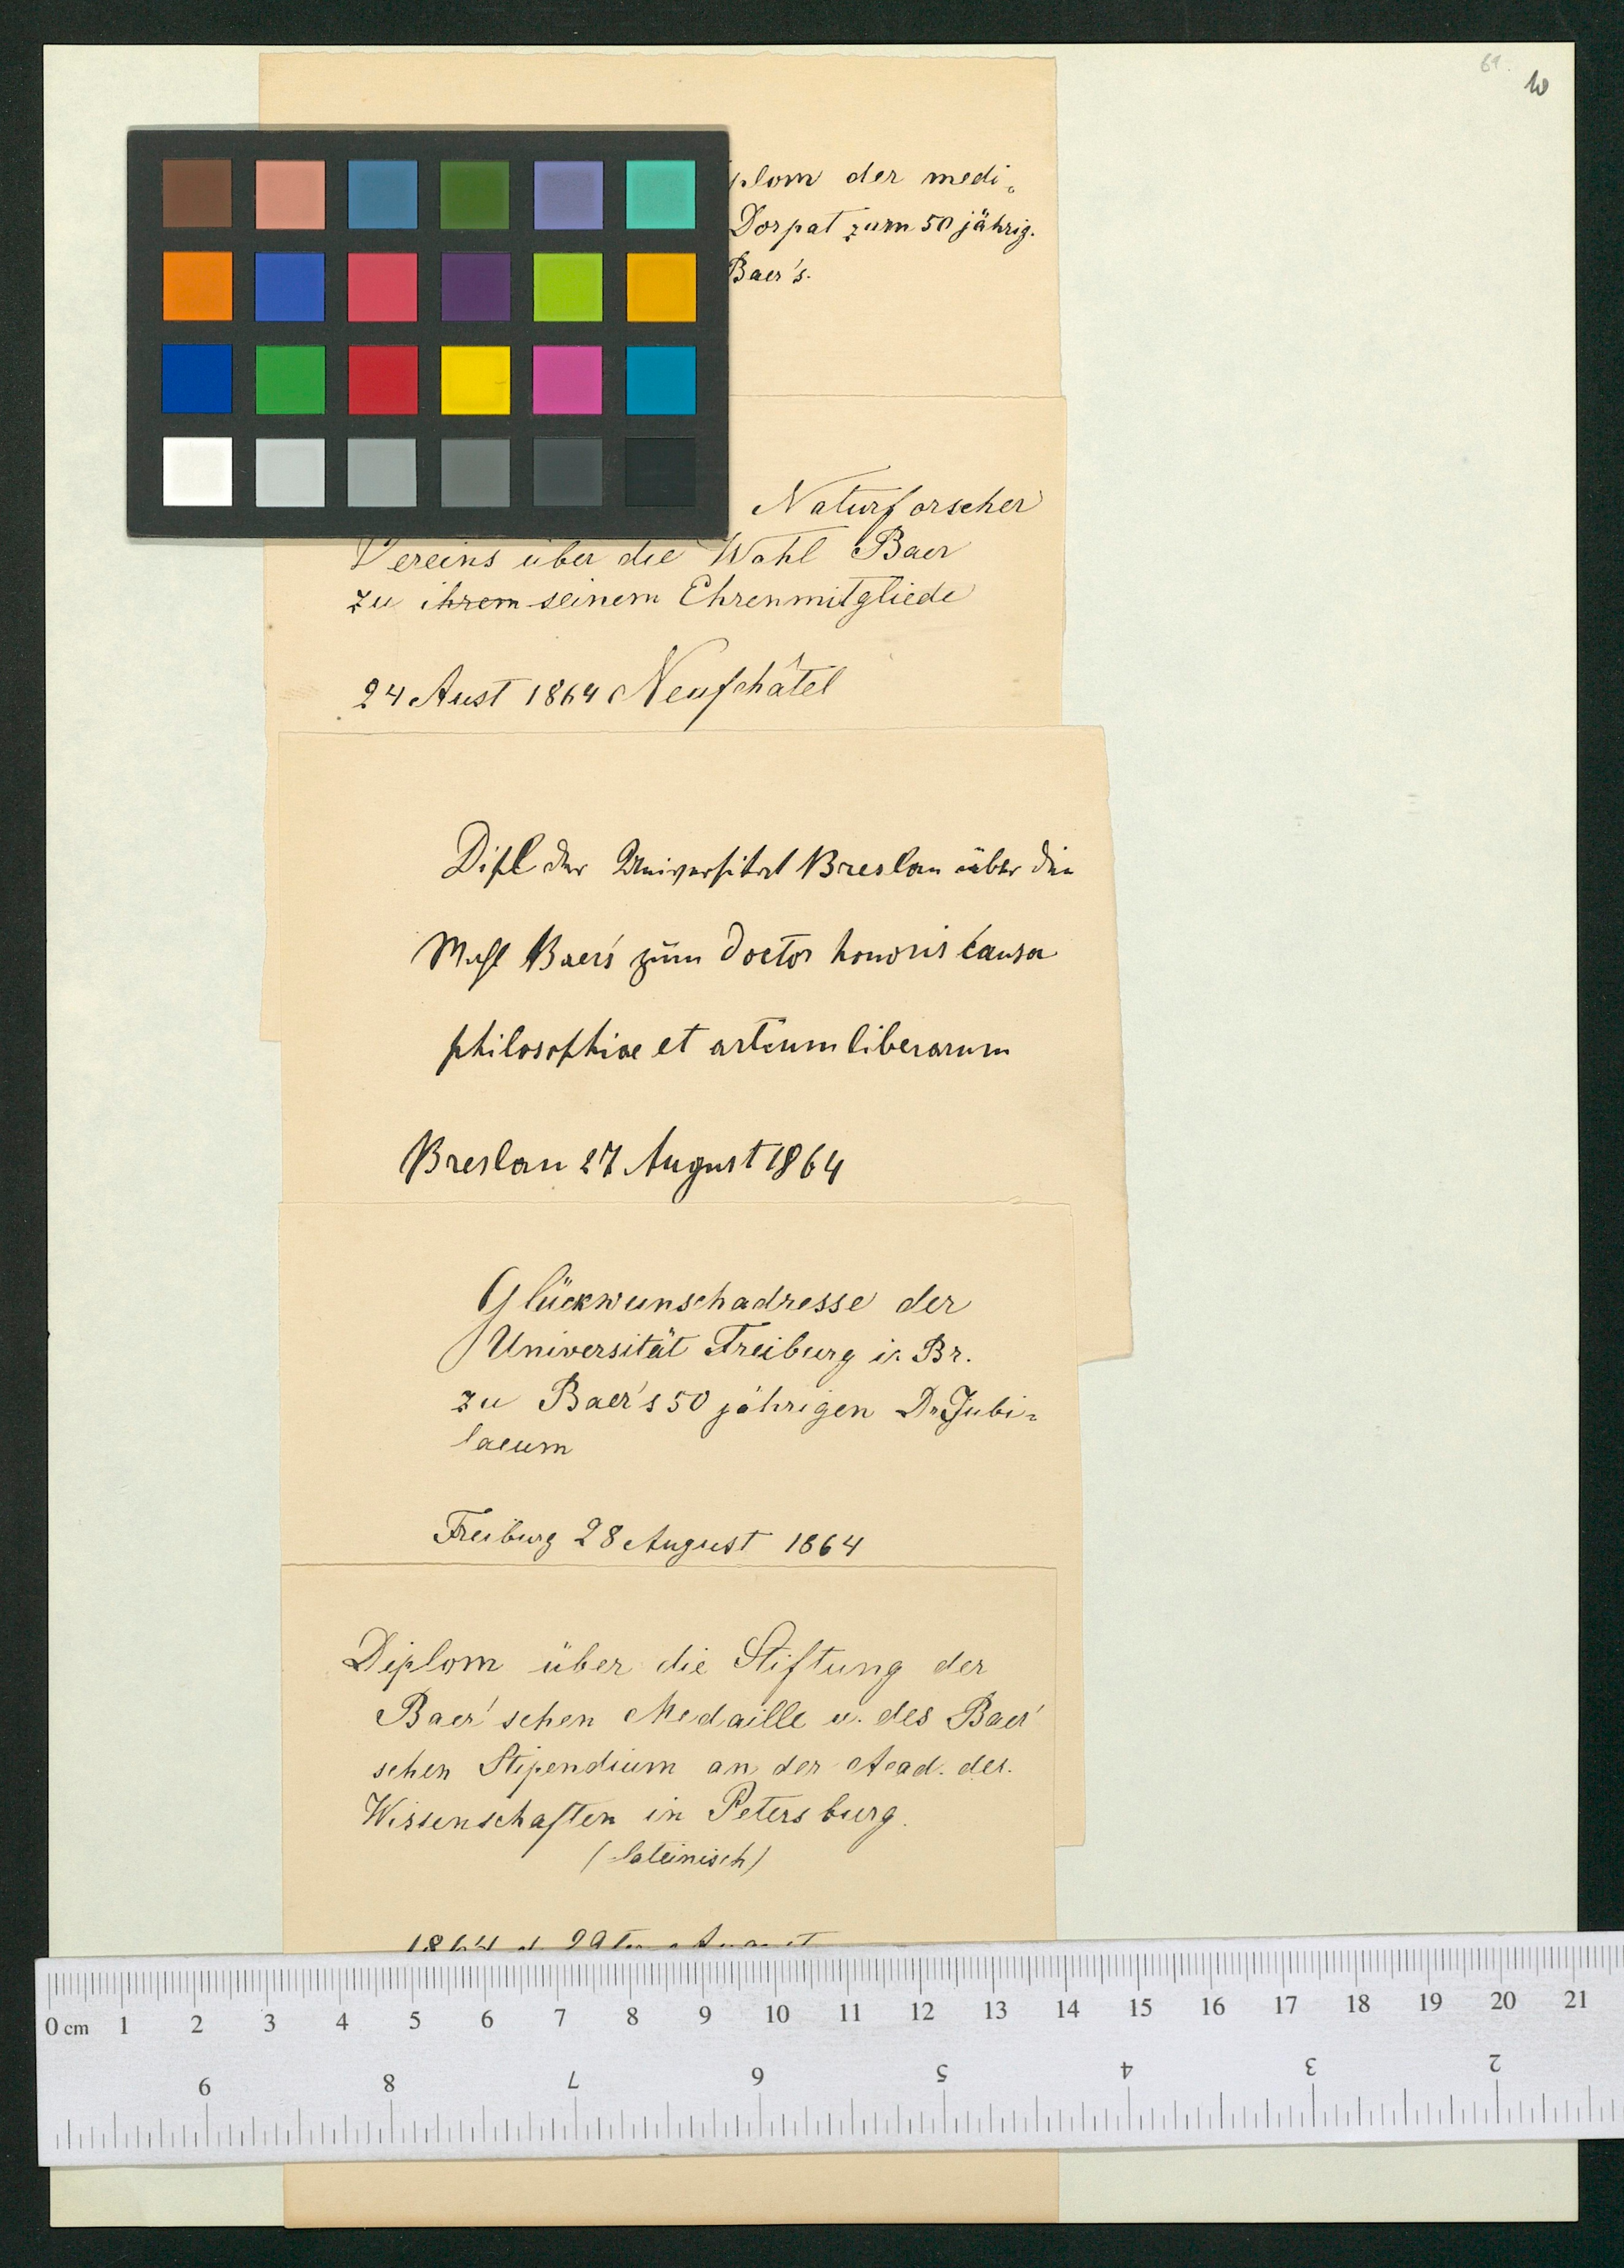 61.
10
plom der medi-
Dorpat zum 50 jährig.
Baer's.
Naturforscher
Vereins über die Wahl Baer
zu ihrem seinem Ehrenmitgliede
24 Aust 1864 Neufchâtel
Dipl der Universität Breslau über die
Wahl Baers zum Doctor honoris causa
philosophiae et artium liberarum
Breslau 27 August 1864
Glückwunschadresse der
Universität Freiburg i. Br.
zu Baer's 50 jährigen Dr Jubi-
laeum
Freiburg 28 August 1864
Diplom über die Stiftung der
Baer'schen Medaille u. des Baer'
schen Stipendium an der Acad. der.
Wissenschaften in Petersburg.
(lateinisch)
1864 d. 29ten August
0 cm 1 2 3 4 5 6 7 8 9 10 11 12 13 14 15 16 17 18 19 20 21
9 8 7 6 5 4 3 2